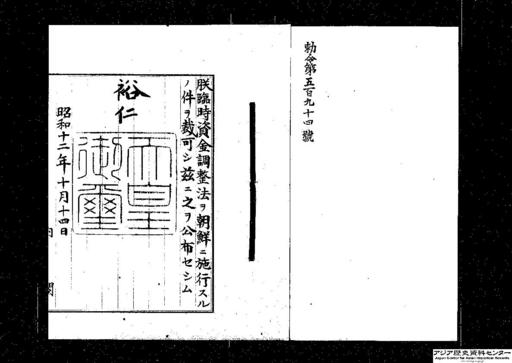 勅令第五百九十四號
朕臨時資金調整法ヲ朝鮮ニ施行スル
ノ件ヲ裁可シ茲ニ之ヲ公布セシム
裕仁
天皇御璽
昭和十二年十月十四日
内閣
アジア歴史資料センター
Japan Center for Asian Historical Records